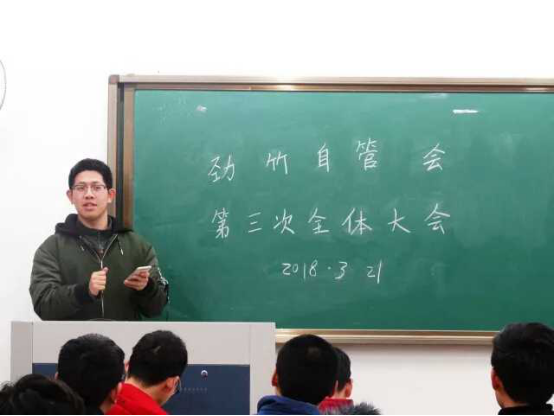 劲竹自管会
第三次全体大会
2018.3 21